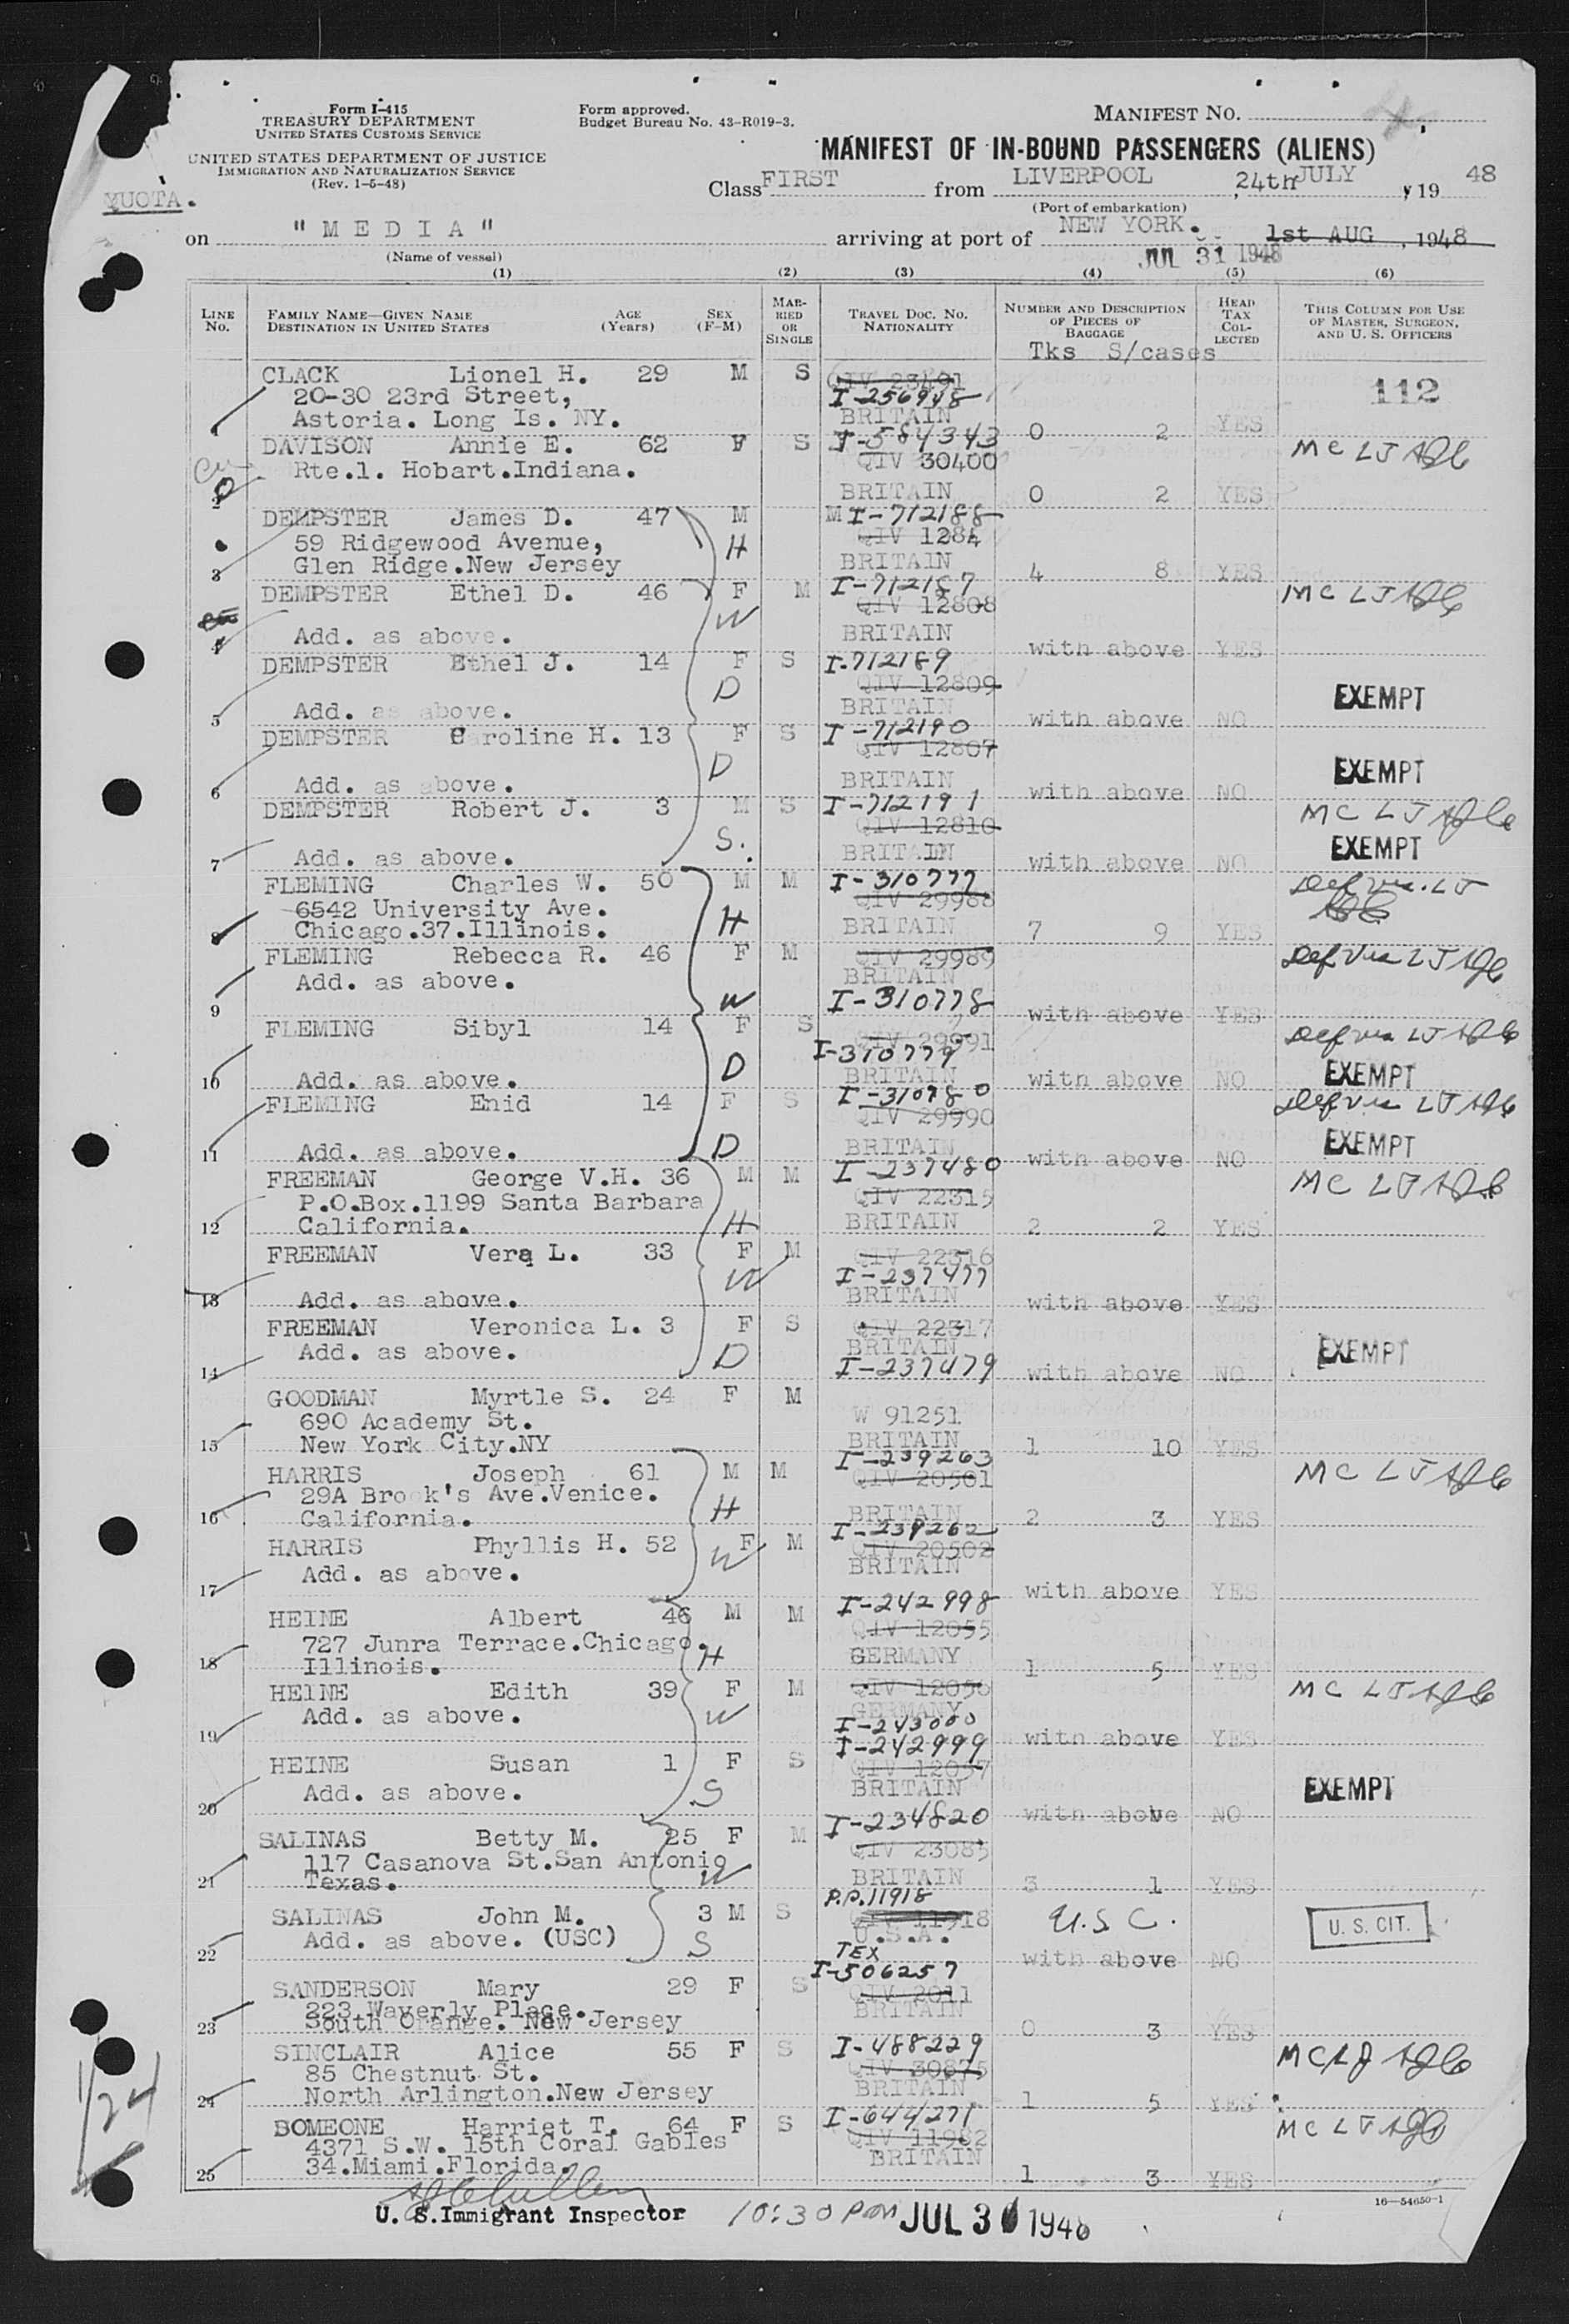 Form I-415
TREASURY DEPARTMENT
UNITED STATES CUSTOMS SERVICE
UNITED STATES DEPARTMENT OF JUSTICE
IMMIGRATION AND NATURALIZATION SERVICE
(Rev. 1-5-48)
Form approved.
Budget Bureau No. 43-R019-3.
MANIFEST NO.
MANIFEST OF IN-BOUND PASSENGERS (ALIENS)
Class FIRST from LIVERPOOL, 24th JULY, 19 48
(Port of embarkation)
QUOTA.
on "MEDIA" arriving at port of NEW YORK. 1st AUG, 1948
(Name of vessel) JUL 31 1948
(1) (2) (3) (4) (5) (6)
LINE No. FAMILY NAME—GIVEN NAME DESTINATION IN UNITED STATES AGE (Years) SEX (F-M) MARRIED OR SINGLE TRAVEL DOC. NO. NATIONALITY NUMBER AND DESCRIPTION OF PIECES OF BAGGAGE HEAD TAX COLLECTED THIS COLUMN FOR USE OF MASTER, SURGEON, AND U. S. OFFICERS
Tks S/cases
CLACK Lionel H. 29 M S QIV 23491
20-30 23rd Street, I-256948 112
1 Astoria. Long Is. NY. BRITAIN 0 2 YES
DAVISON Annie E. 62 F S I-584343 MC LJ
Rte.1. Hobart.Indiana. QIV 30400
2 BRITAIN 0 2 YES
DEMPSTER James D. 47 M M I-712188
59 Ridgewood Avenue, H QIV 1284
3 Glen Ridge.New Jersey BRITAIN 4 8 YES
DEMPSTER Ethel D. 46 F M I-712187 MC LJ
QIV 12808 W
4 Add. as above. BRITAIN with above YES
DEMPSTER Ethel J. 14 F S I-712189
D QIV 12809 EXEMPT
5 Add. as above. BRITAIN with above NO
DEMPSTER Caroline H. 13 F S I-712190
D QIV 12807 EXEMPT
6 Add. as above. BRITAIN with above NO
DEMPSTER Robert J. 3 M S I-712191 MC LJ
S. QIV 12810 EXEMPT
7 Add. as above. BRITAIN with above NO
FLEMING Charles W. 50 M M I-310777
6542 University Ave. H QIV 29988
8 Chicago.37.Illinois. BRITAIN 7 9 YES
FLEMING Rebecca R. 46 F M QIV 29989
Add. as above. BRITAIN
9 W I-310778 with above YES
FLEMING Sibyl 14 F S QIV 29991
D I-310779
10 Add. as above. BRITAIN with above NO EXEMPT
FLEMING Enid 14 F S I-310780
QIV 29990
11 Add. as above. D BRITAIN with above NO EXEMPT
FREEMAN George V.H. 36 M M I-237480 MC LJ
P.O.Box.1199 Santa Barbara QIV 22315
12 California. H BRITAIN 2 2 YES
FREEMAN Vera L. 33 F M QIV 22316
W I-237477
13 Add. as above. BRITAIN with above YES
FREEMAN Veronica L. 3 F S QIV 22317
Add. as above. D BRITAIN EXEMPT
14 I-237479 with above NO
GOODMAN Myrtle S. 24 F M
690 Academy St. W 91251
15 New York City.NY BRITAIN 1 10 YES
HARRIS Joseph 61 M M I-239263 MC LJ
29A Brook's Ave.Venice. H QIV 20501
16 California. BRITAIN 2 3 YES
HARRIS Phyllis H. 52 F M I-239262
Add. as above. W QIV 20502
17 BRITAIN with above YES
HEINE Albert 46 M M I-242998
727 Junra Terrace.Chicago. H QIV 12055
18 Illinois. GERMANY 1 5 YES
HEINE Edith 39 F M QIV 12056 MC LJ
Add. as above. W GERMANY
19 I-243000 with above YES
HEINE Susan 1 F S I-242999
Add. as above. S QIV 12057 EXEMPT
20 BRITAIN with above NO
SALINAS Betty M. 25 F M I-234820
117 Casanova St.San Antonio W QIV 23085
21 Texas. BRITAIN 3 1 YES
SALINAS John M. 3 M S P.P.11918 U.S.C. U. S. CIT.
Add. as above. (USC) S U.S.A.
22 TEX with above NO
SANDERSON Mary 29 F S I-506257
223 Waverly Place. QIV 2011
23 South Orange. New Jersey BRITAIN 0 3 YES
SINCLAIR Alice 55 F S I-488229
85 Chestnut St. QIV 30875
24 North Arlington.New Jersey BRITAIN 1 5 YES
SOMEONE Harriet T. 64 F S I-644271
4371 S.W. 15th Coral Gables QIV 11982
25 34.Miami.Florida. BRITAIN 1 3 YES
16—54650-1
U. S. Immigrant Inspector 10:30 PM JUL 30 1948